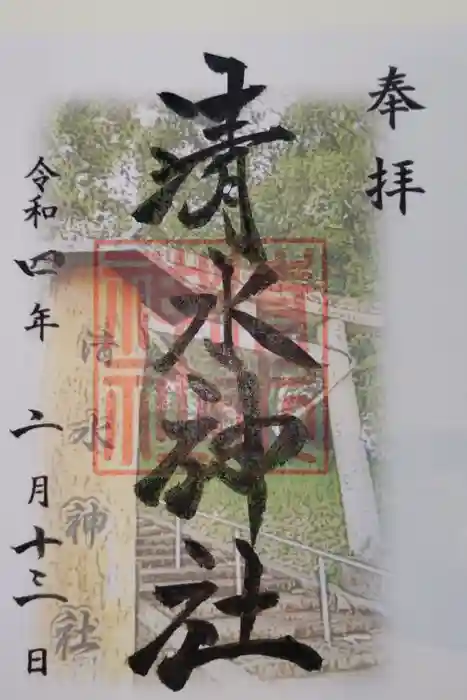 奉拝
清水神社
令和四年二月十三日
清水神社